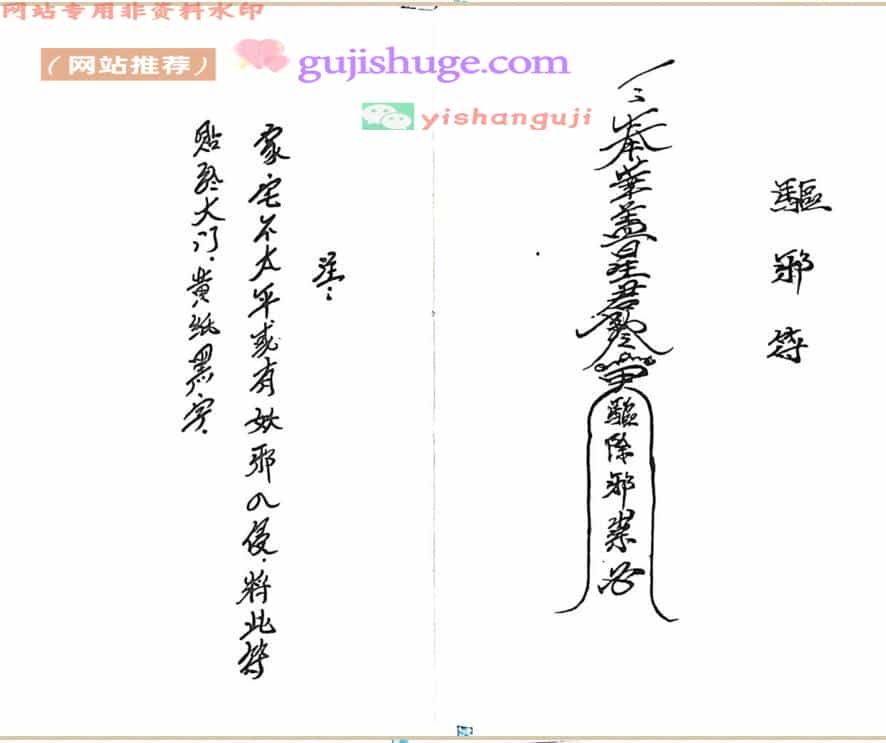 网站专用非资料水印
(网站推荐)
gujishuge.com
yishanguji
驅邪符
奉華蓋星君勅令
驅除邪祟
注:
家宅不太平或有妖邪入侵.将此符
贴於大门.黄纸黑字.